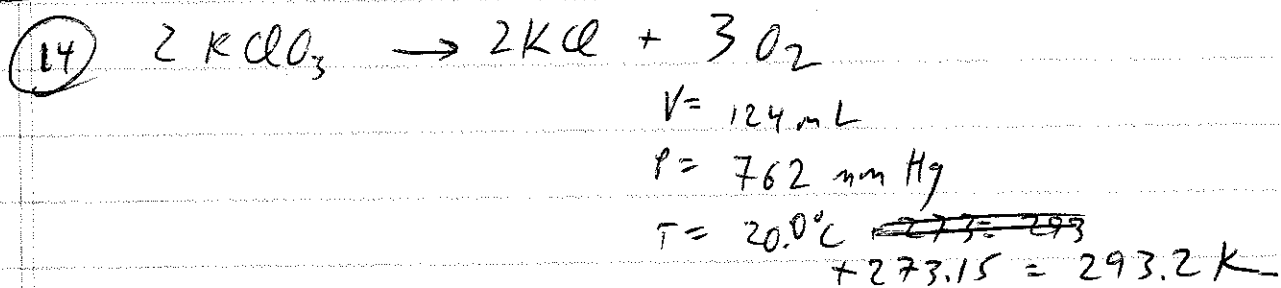 14 2 KClO₃ → 2KCl + 3 O₂
V= 124 mL
P= 762 mm Hg
T= 20.0°C +273= 293
+273.15 = 293.2 K